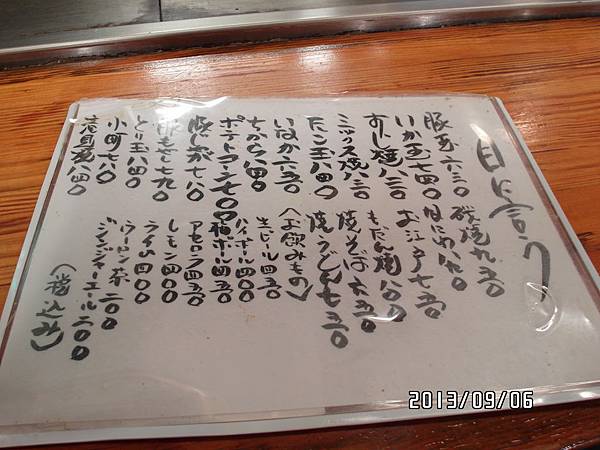 豚玉六三〇
いか玉七四〇
すじ焼八三〇
ミックス焼八三〇
たこ玉八四〇
いなか六五〇
ちから八四〇
ポテトマン七〇〇
豚しが七八〇
豚もやし七九〇
とり玉八四〇
小町七八〇
磯焼九五〇
なにわ八九〇
お江戸七五〇
もだん焼八〇〇
焼そば六五〇
焼うどん七五〇
〈お飲みもの〉
生ビール四五〇
ハイボール四〇〇
梅ボール四五〇
アセロラ四五〇
レモン四〇〇
ライム四〇〇
ウーロン茶二〇〇
ジンジャーエール二〇〇
（税込み）
2013/09/06